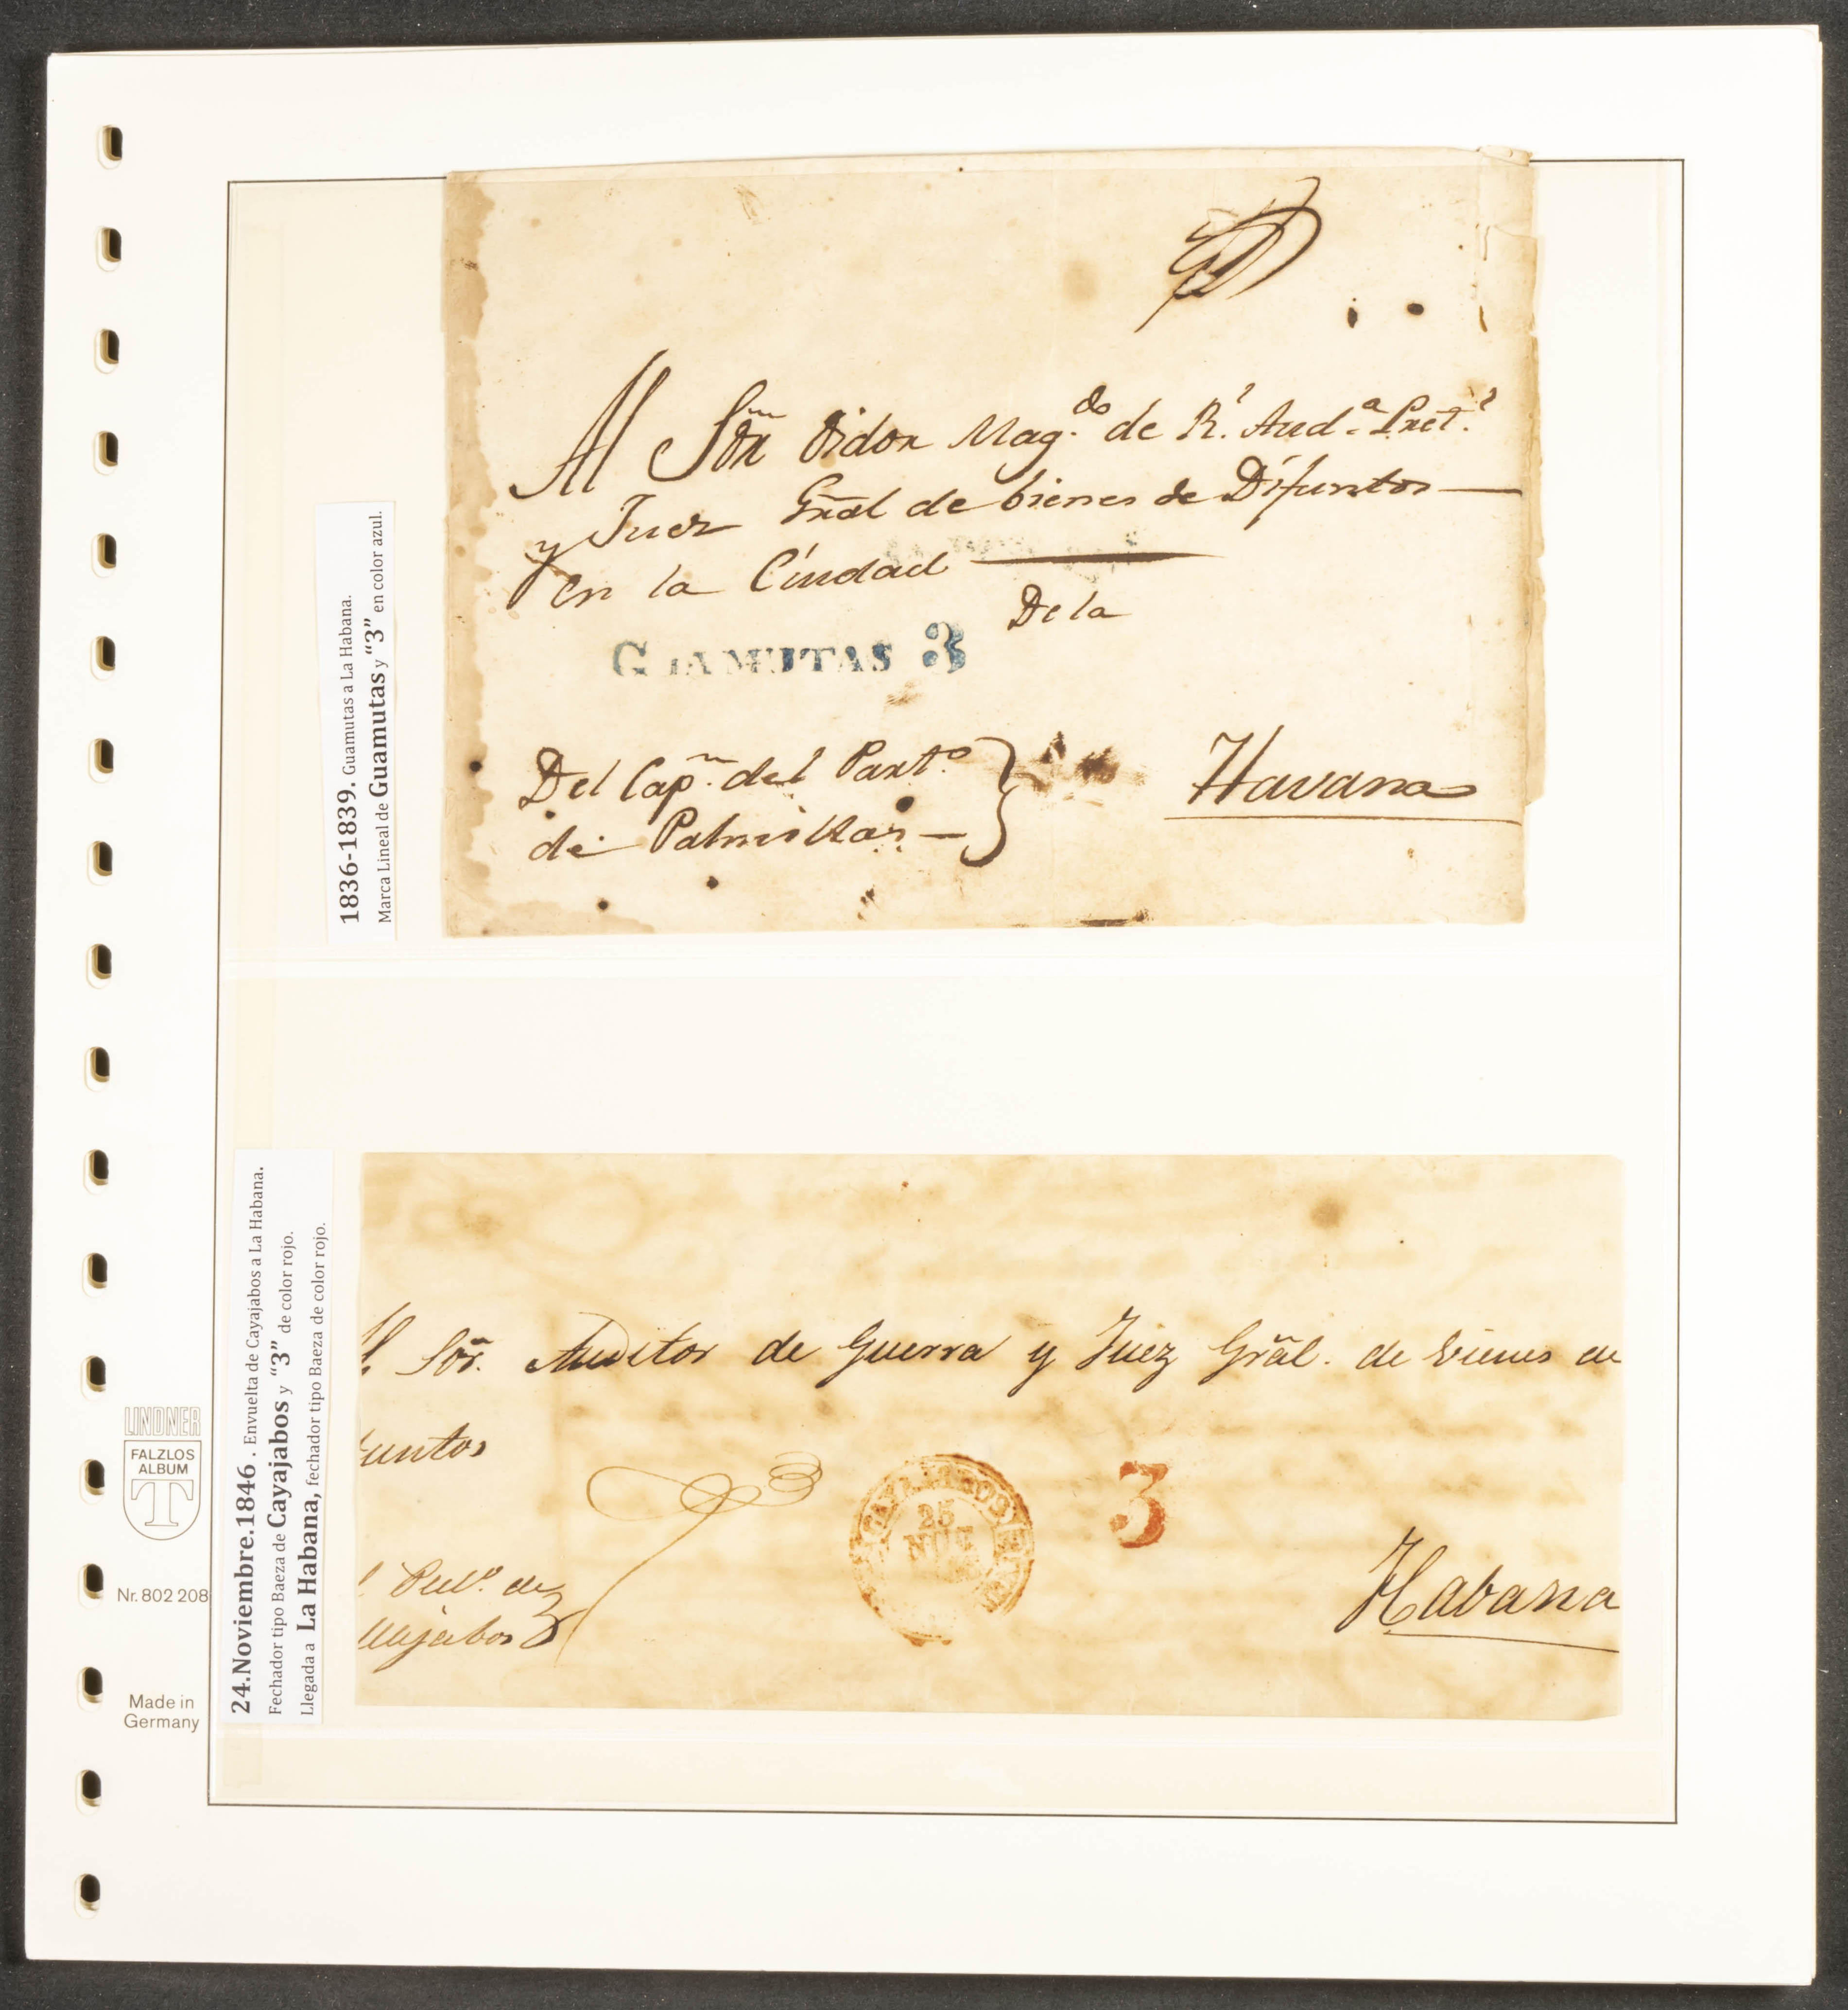 Al Sõr Oidor Mag.do de Rl. Aud.a Pret.l
y Juez Gräl de bienes de Difuntos
en la Ciudad
De la
GUAMUTAS 3
Del Cap.n del Part.o
de Palmillas
Havana
1836-1839. Guamutas a La Habana.
Marca Lineal de Guamutas y “3” en color azul.
l Sõr. Auditor de Guerra y Juez Gräl. de vienes de
funtos
3
25
NOE
Habana
de
yajabos
24.Noviembre.1846 . Envuelta de Cayajabos a La Habana.
Fechador tipo Baeza de Cayajabos y “3” de color rojo.
Llegada a La Habana, fechador tipo Baeza de color rojo.
LINDNER
FALZLOS
ALBUM
T
Nr. 802 208
Made in
Germany